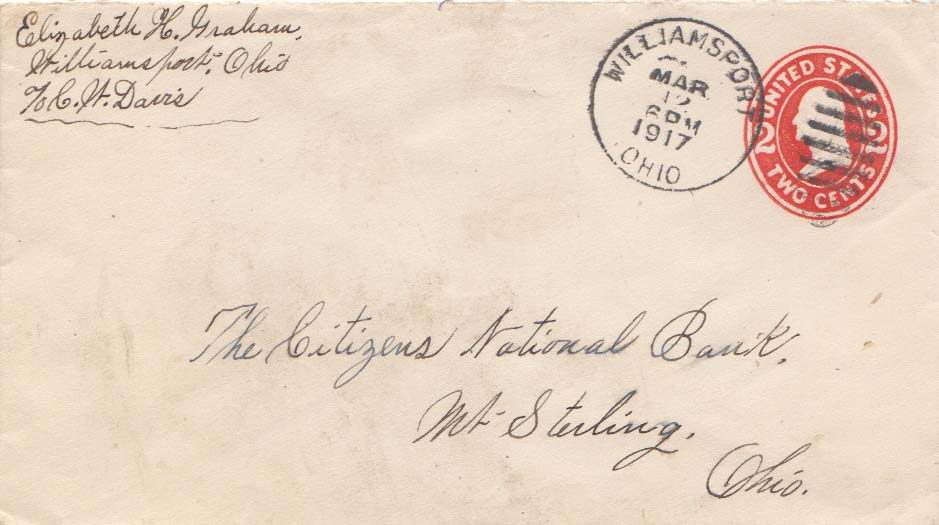 Elizabeth H. Graham,
Williamsport, Ohio
℅ C. W. Davis
WILLIAMSPORT
MAR
12
6 PM
1917
OHIO
UNITED STATES
2 2
TWO CENTS
The Citizens National Bank,
Mt Sterling,
Ohio.